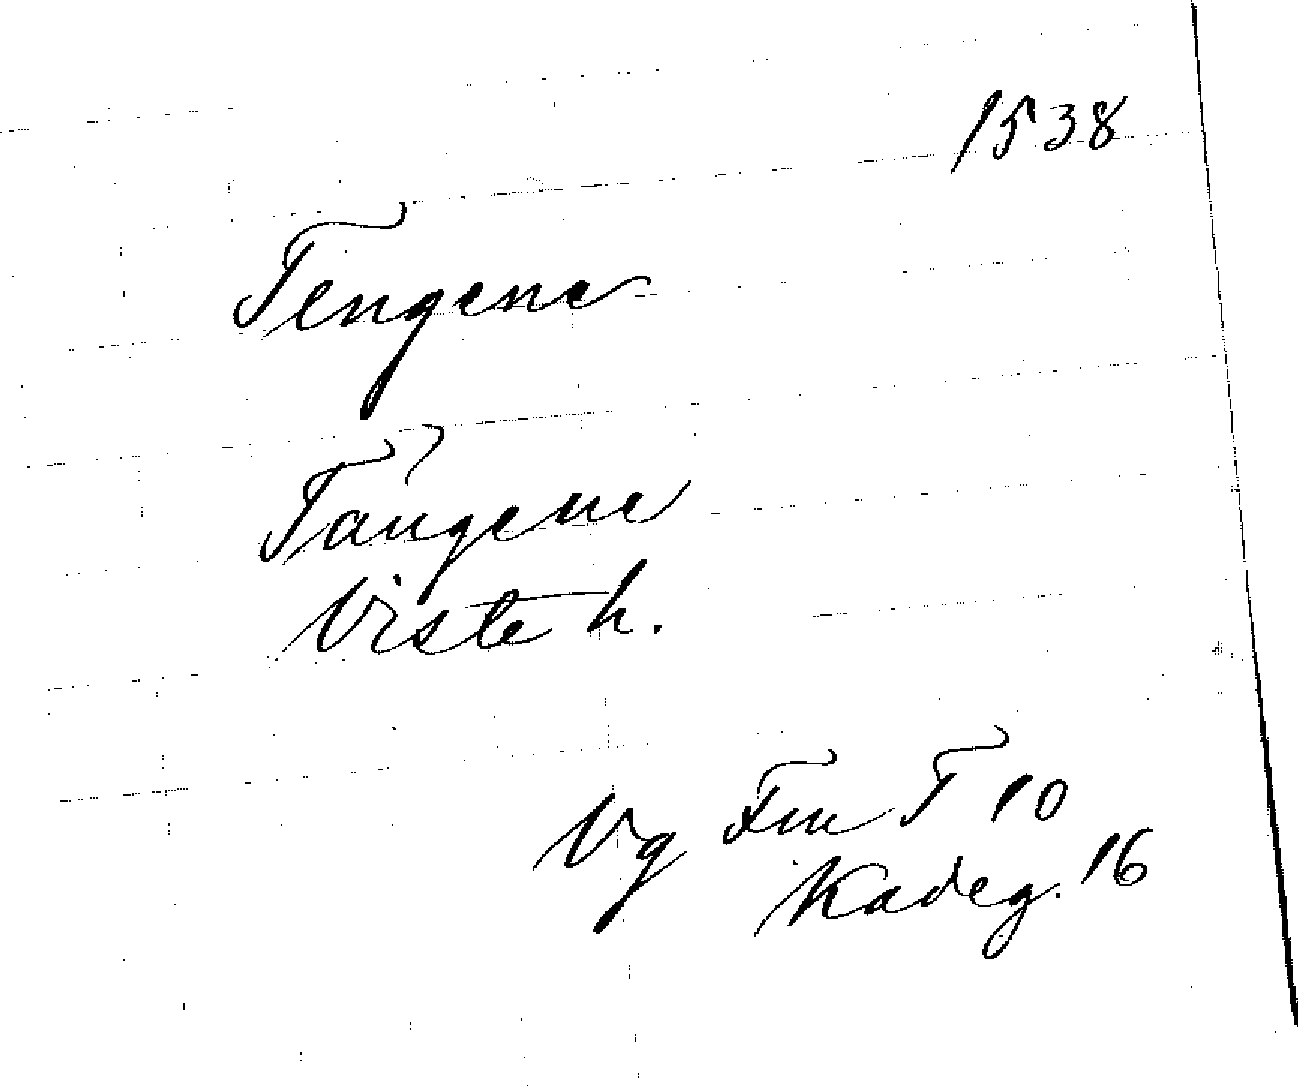 1538
Tengene
Tängene
Viste h.
Vg Fru T 10
Kadeg. 16